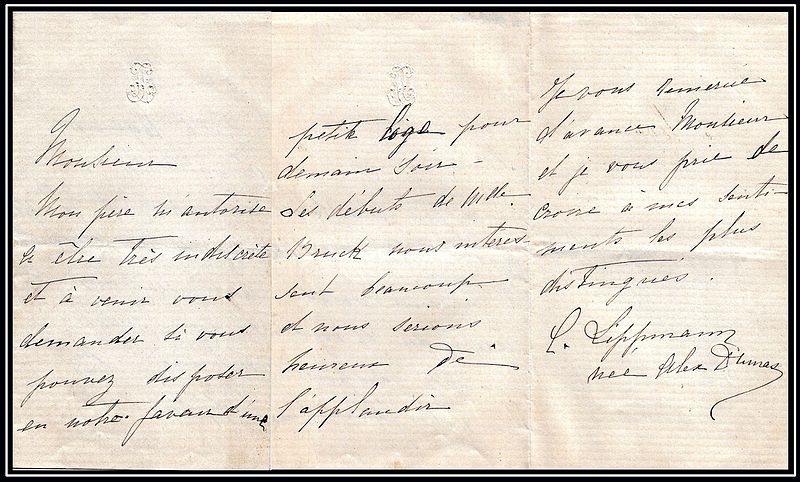 Monsieur
Mon père m'autorise
à être très indiscrète
et à venir vous
demander si vous
pouvez disposer
en notre faveur d'une
petite loge pour
demain soir –
Les débuts de Melle
nous intéres-
sent beaucoup
et nous serions
heureux de
l'applaudir
Je vous remercie
d'avance Monsieur
et je vous prie de
croire à mes senti-
ments les plus
distingués.
C. Lippmann
née Alex Dumas